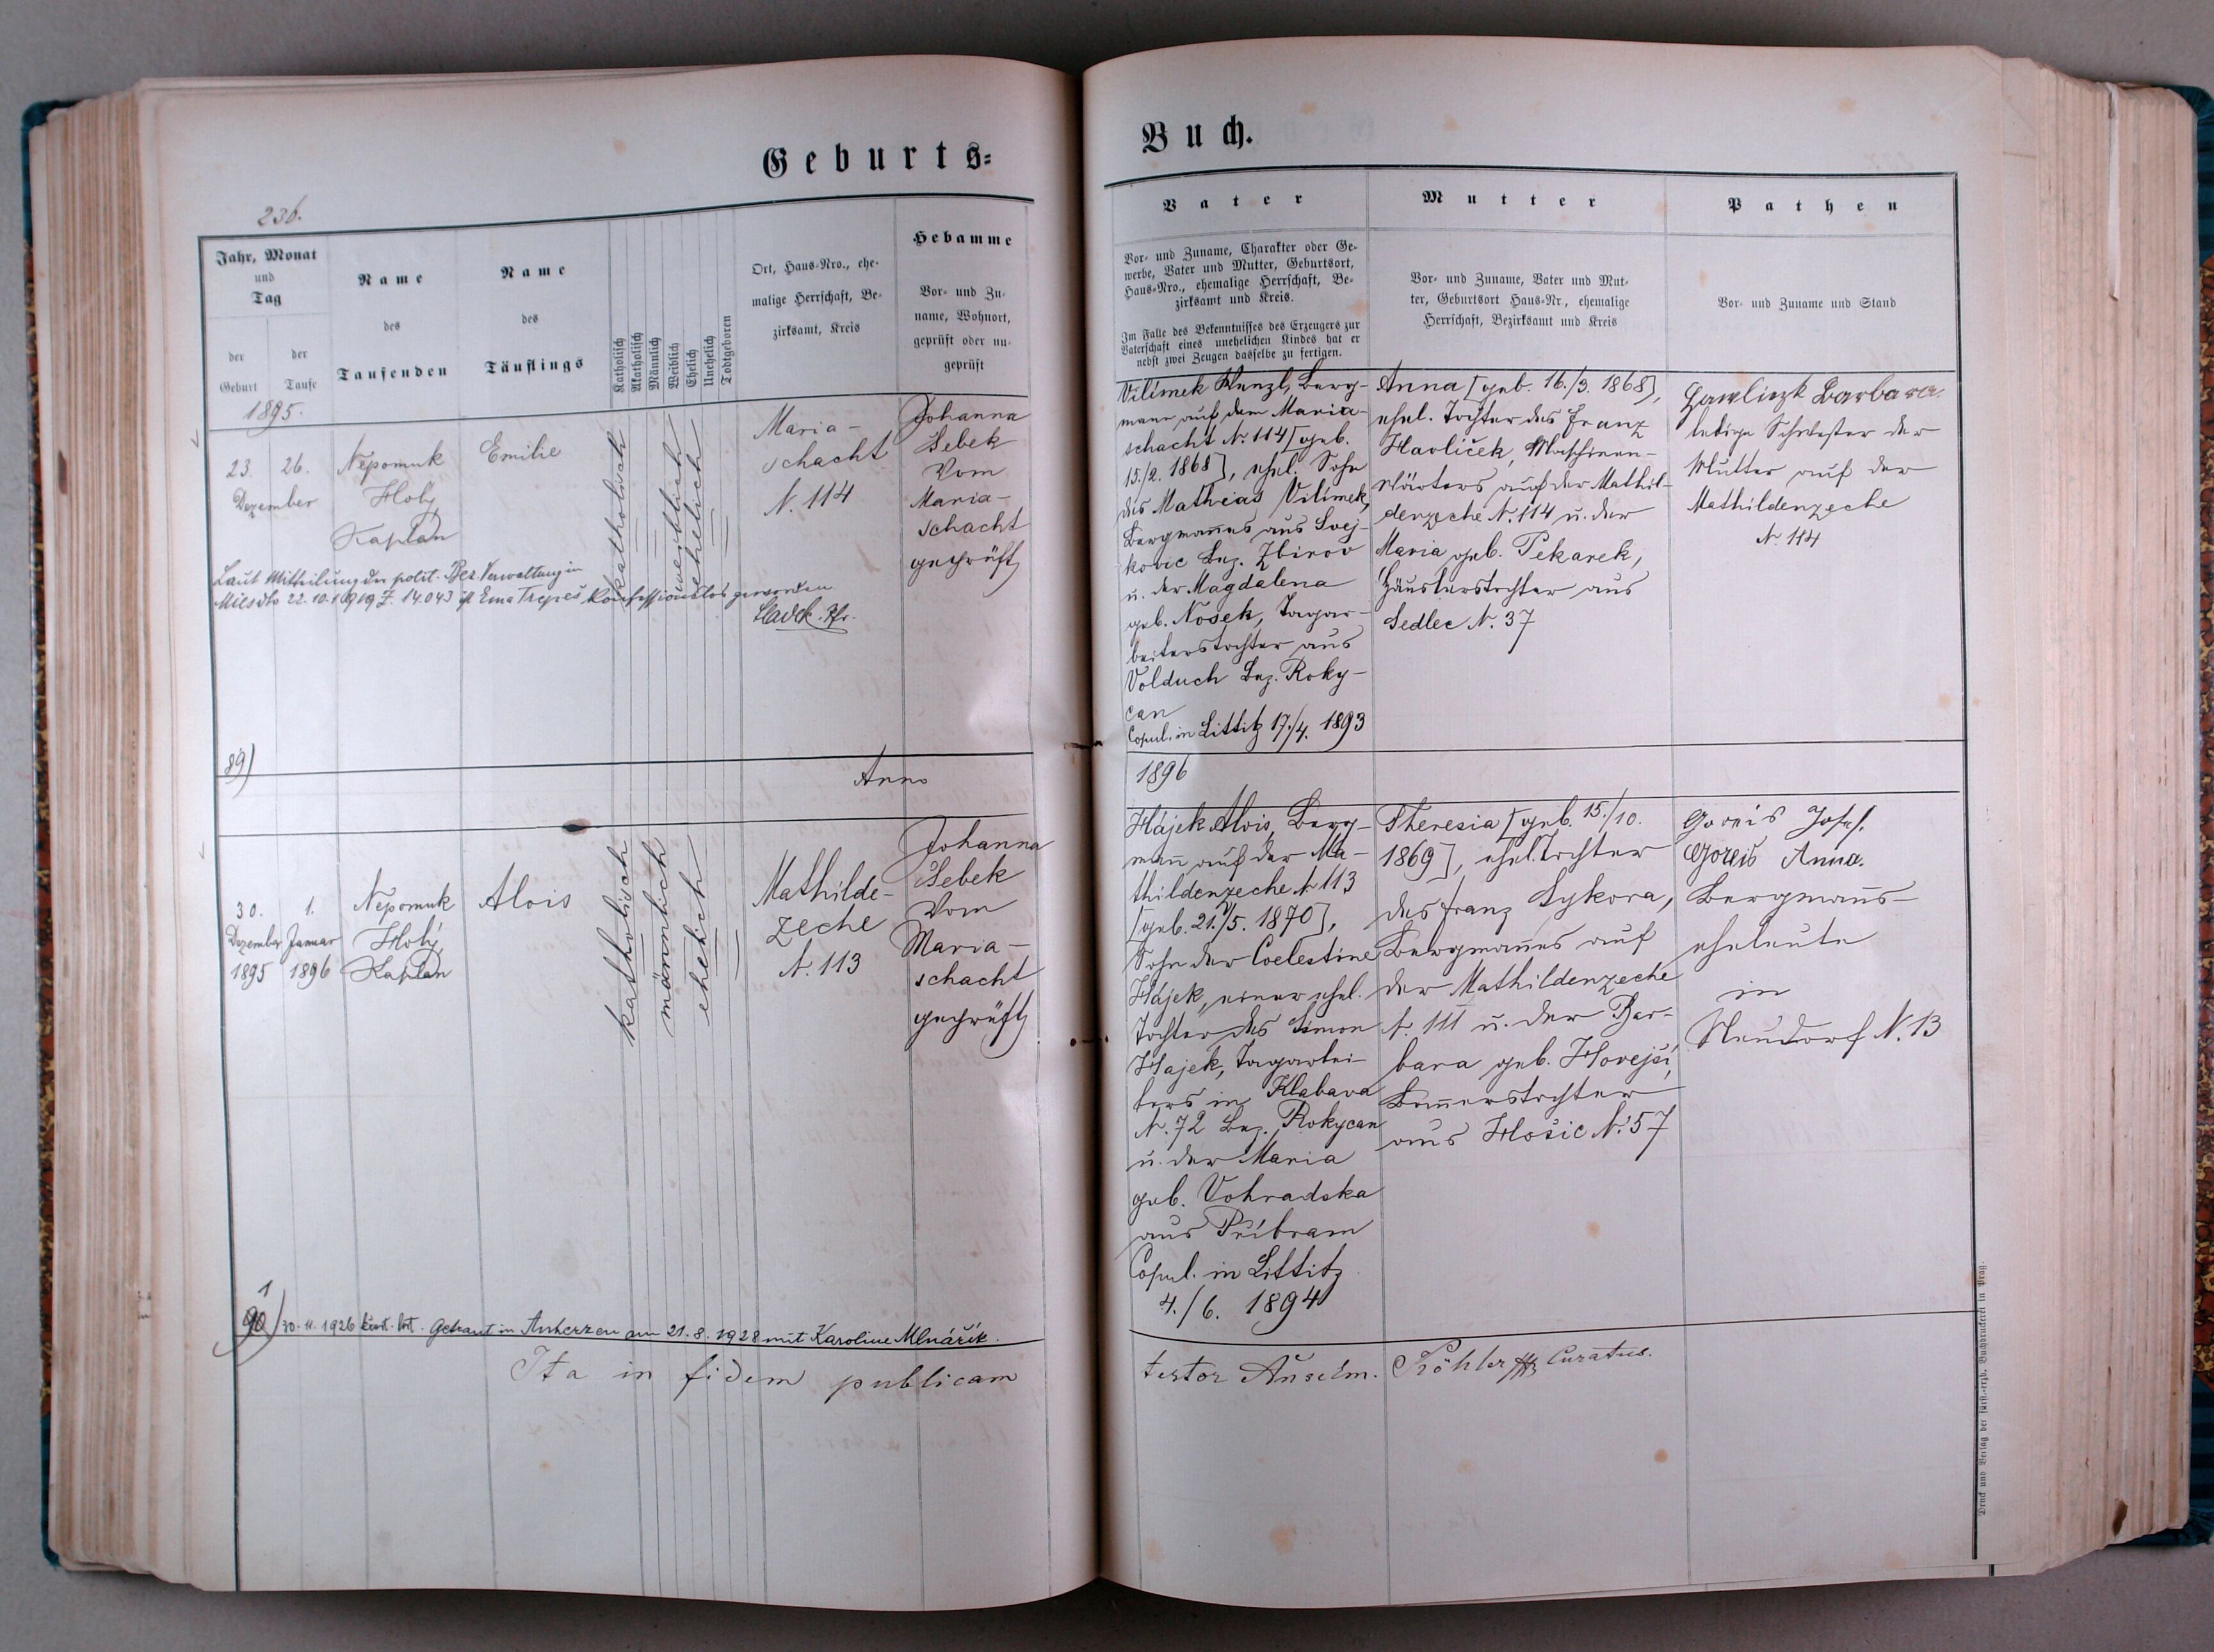 Geburts-
Buch.
236.
Jahr, Monat
und
Tag
der
Geburt
der
Taufe
Name
des
Taufenden
Name
des
Täuflings
Katholisch
Akatholisch
Männlich
Weiblich
Ehelich
Unehelich
Todtgeboren
Ort, Haus-Nro., ehe-
malige Herrschaft, Be-
zirksamt, Kreis
Hebamme
Vor- und Zu-
name, Wohnort,
geprüft oder un-
geprüft
Vater
Vor- und Zuname, Charakter oder Ge-
werbe, Vater und Mutter, Geburtsort,
Haus-Nro., ehemalige Herrschaft, Be-
zirksamt und Kreis.
Im Falle des Bekenntnisses des Erzeugers zur
Vaterschaft eines unehelichen Kindes hat er
nebst zwei Zeugen dasselbe zu fertigen.
Mutter
Vor- und Zuname, Vater und Mut-
ter, Geburtsort Haus-Nr., ehemalige
Herrschaft, Bezirksamt und Kreis
Pathen
Vor- und Zuname und Stand
1895.
23. 26.
Dezember
Nepomuk
Holý
Kaplan
Emilie
katholisch
weiblich
ehelich
Maria-
schacht
N. 114
Johanna
Sebek
vom
Maria-
schacht
geprüft
Laut Mitteilung der polit. Bez. Verwaltung in
Mies dto 22.10.1919 Z. 14.043 ist Ema Trepeš konfessionslos geworden
Sladek. Pfr.
Vilímek Wenzl, Berg-
mann auf dem Maria-
schacht N. 114 [geb.
15./2. 1868], ehel. Sohn
des Mathias Vilímek,
Bergmannes aus Svej-
kovic Bez. Zbirov
u. der Magdalena
geb. Nosek, Tagar-
beiterstochter aus
Volduch Bez. Roky-
can
Copul. in Littitz 17./4. 1893
Anna [geb. 16./3. 1868],
ehel. Tochter des Franz
Havlíček, Maschinen-
wärters auf der Mathil-
denzeche N. 114 u. der
Maria geb. Pekarek,
Häuslerstochter aus
Sedlec N. 37
Hawliczk Barbara.
ledige Schwester der
Mutter auf der
Mathildenzeche
N. 114
89)
Anno
1896
30. 1.
Dezember Januar
1895 1896
Nepomuk
Holý
Kaplan
Alois
katholisch
männlich
ehelich
Mathilde-
zeche
N. 113
Johanna
Sebek
vom
Maria-
schacht
geprüft
Hájek Alois, Berg-
mann auf der Ma-
thildenzeche N. 113
[geb. 21./5. 1870],
Sohn der Coelestine
Hájek, einer ehel.
Tochter des Simon
Hajek, Tagarbei-
ters in Klabava
N. 72 Bez. Rokycan
u. der Maria
geb. Vohradska
aus Příbram
Copul. in Littitz
4./6. 1894
Theresia [geb. 15./10.
1869], ehel. Tochter
des Franz Sykora,
Bergmannes auf
der Mathildenzeche
N. 111 u. der Bar-
bara geb. Hovejší,
Bauerstochter
aus Hlošic N. 57
Goreis Josef.
Goreis Anna.
Bergmanns-
eheleute
in
Neudorf N. 13
1
90) 30.11.1926 Getraut in Auherzen am 21.8.1928 mit Karoline Mlnářík.
Ita in fidem publicam
testor Anselm. Pröhler Curatus.
Druck und Verlag der fürst.-erzb. Buchdruckerei in Prag.